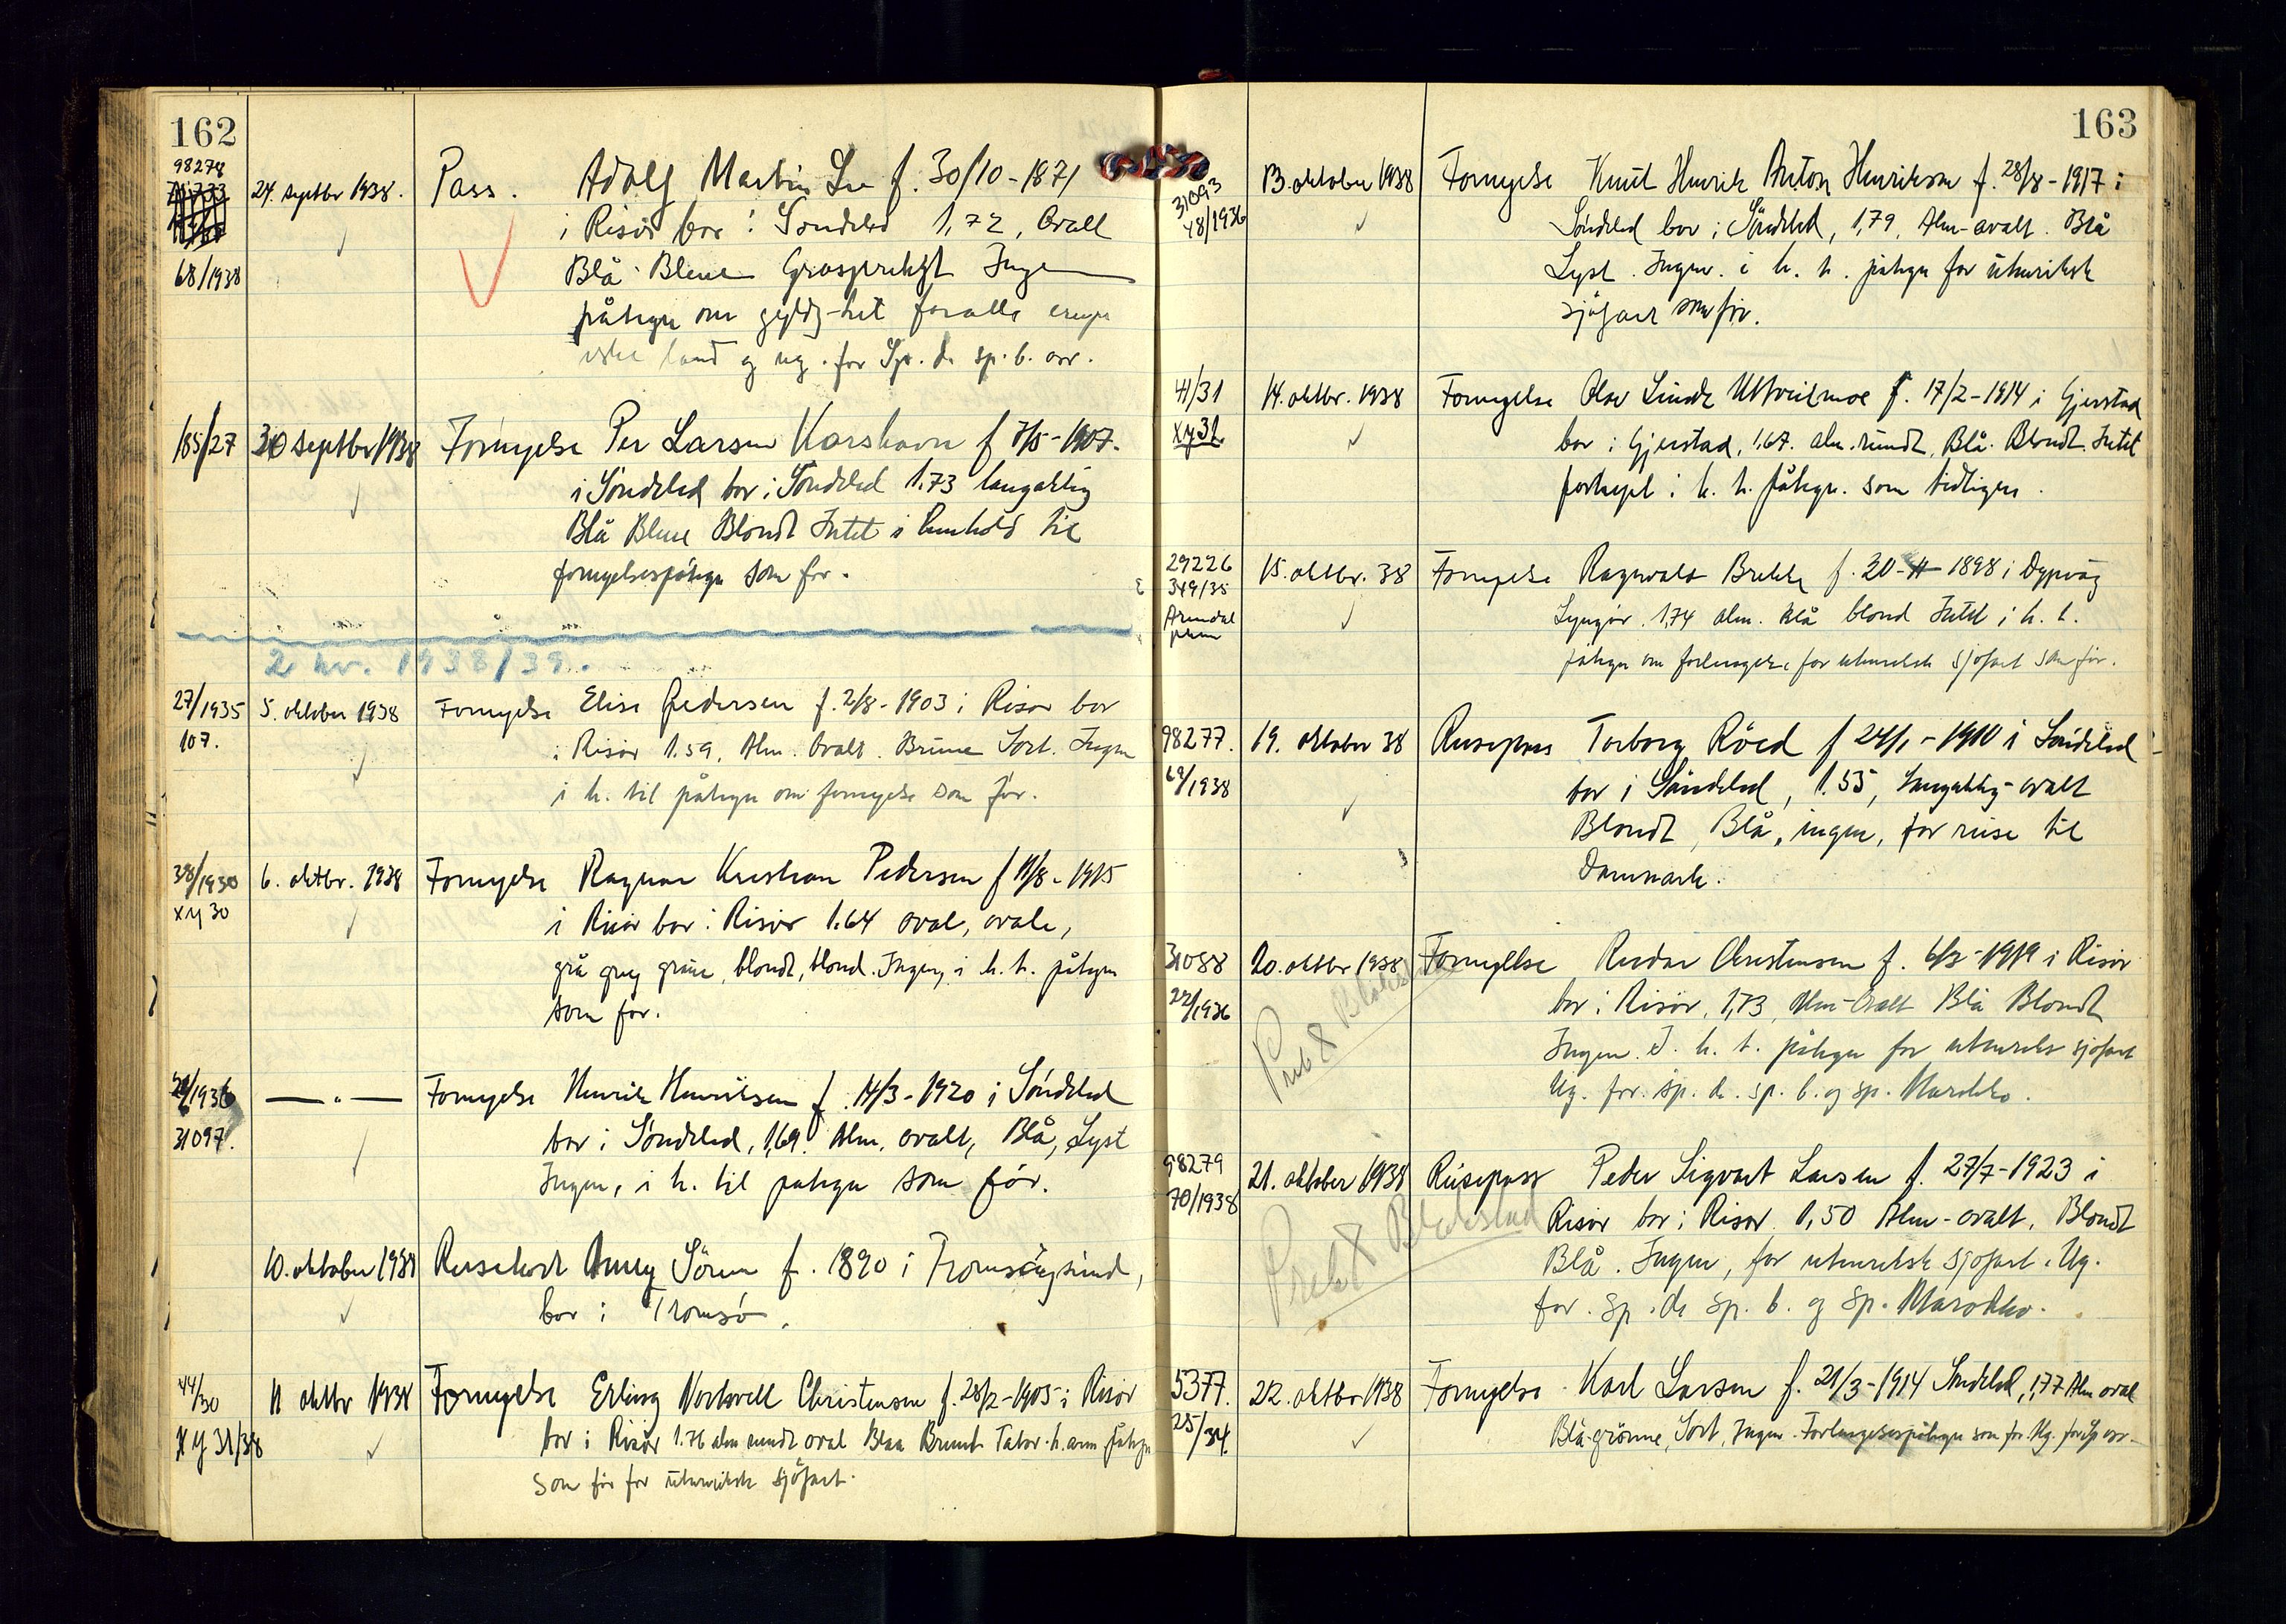 162
98278
68/1938
24. septbr 1938.
Pass. Adolf Martin f. 30/10-1871
i Risör bor i Söndeled 1,72, Ovalt
Blå Bleue Gråsprengt Ingen
påtegn om gyldighet for alle
land og ug. for Sp. d. sp. b. omr.
185/27 30 septbr 1938 Fornyelse Per Larsen Korshavn f 7/5-1907.
i Söndeled bor i Söndeled 1.73 langaktig
Blå Bleue Blondt Intet i henhold til
fornyelsespåtegn som før.
2 kv. 1938/39.
27/1935 5. oktober 1938 Fornyelse Elise Pedersen f. 2/8-1903 i Risør bor
107. i Risør 1.59, Alm. Ovalt. Brune Sort. Ingen
i h. til påtegn om fornyelse som før.
38/1930 6. oktbr. 1938 Fornyelse Ragnar Kristian Pedersen f 11/8-1915
xy 30 i Risør bor i Risør 1.64 oval, ovale,
grå grey grise, blondt, blond. Ingen, i h. t. påtegn
som før.
/1936 —„— Fornyelse Henrik Henriksen f. 14/3-1920 i Söndeled
31097. bor i Söndeled, 1,69. Alm. ovalt, Blå, Lyst
Ingen, i h. til påtegn som før.
10. oktober 1938 Reisekort Anny Sören f. 1890 i Tromsöysund,
bor i Tromsö.
44/30 11 oktbr 1938 Fornyelse Erling Christensen f. 28/2-1905 i Risør
xy 31/38 bor i Risør 1.76 alm rundt oval Blaa Brunt Tator. h. arm påtegn
som før for utenriksk sjöfart.
163
31093
48/1936
13. oktober 1938 Fornyelse Knut Henrik Anton Henriksen f. 28/8-1917 i
Söndeled bor i Söndeled, 1,79, Alm-ovalt. Blå
Lyst. Ingen. i h. t. påtegn for utenriksk
sjöfart som før.
41/31 14. oktbr. 1938 Fornyelse Olav Linde f. 17/2-1914 i Gjerstad
xy 31 bor i Gjerstad, 1.67. alm. rundt, Blå. Blondt. Intet
i h. t. påtegn. som tidligere.
29226 15. oktbr. 38 Fornyelse Ragnvald Brekke f. 20- 1898 i Dypvåg
349/35 Lyngør. 1,74 alm. blå blond Intet i h. t.
Arendal påtegn om forlengelse for utenriksk sjöfart som før.
98277. 19. oktober 38 Reisepass Torborg Röed f 24/1-1910 i Söndeled
69/1938 bor i Söndeled, 1.55, Langaktig-ovalt
Blondt, Blå, ingen, for reise til
Danmark.
31088 20. oktbr 1938 Fornyelse Reidar Christensen f. 6/2-1919 i Risör
22/1936 bor i Risör, 1,73, Alm-Ovalt Blå Blondt
Ingen. I. h. t. påtegn for utenriks sjöfart
Ug. for sp. d. sp. b. og sp. Marokko.
98279 21. oktober 1938 Reisepass Peder Sigvart Larsen f. 27/7-1923 i
70/1938 Risör bor i Risør. 1,50 Alm-ovalt. Blondt
Blå. Ingen, for utenriksk sjöfart. Ug.
for. sp. d. sp. b. og sp. Marokko.
5377. 22. oktbr 1938 Fornyelse Karl Larsen f. 21/3-1914 Söndeled, 1,77 Alm oval
25/34. Blå-grönne, Sort, Ingen. Forlengelsespåtegn som før. Ug. for Sp omr.